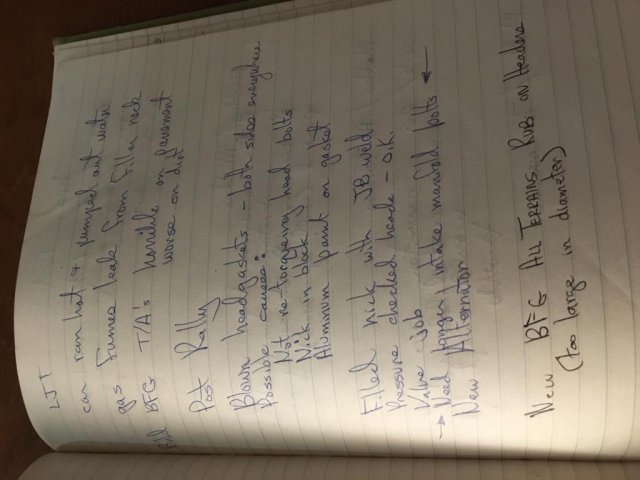 LJT
car ran hot & pumped out water
gas fumes leak from filler neck
BFG T/A's horrible on pavement
worse on dirt
Post Rally
Blown headgaskets - both sides everywhere
Possible causes:
Not re-torqueing head bolts
Nick in block
Aluminum paint on gasket
Filled nick with JB weld
Pressure checked heads - O.K.
Valve job
→ Need longer intake manifold bolts ←
New Alternator
New BFG All Terrains Rub on Headers
(too large in diameter)